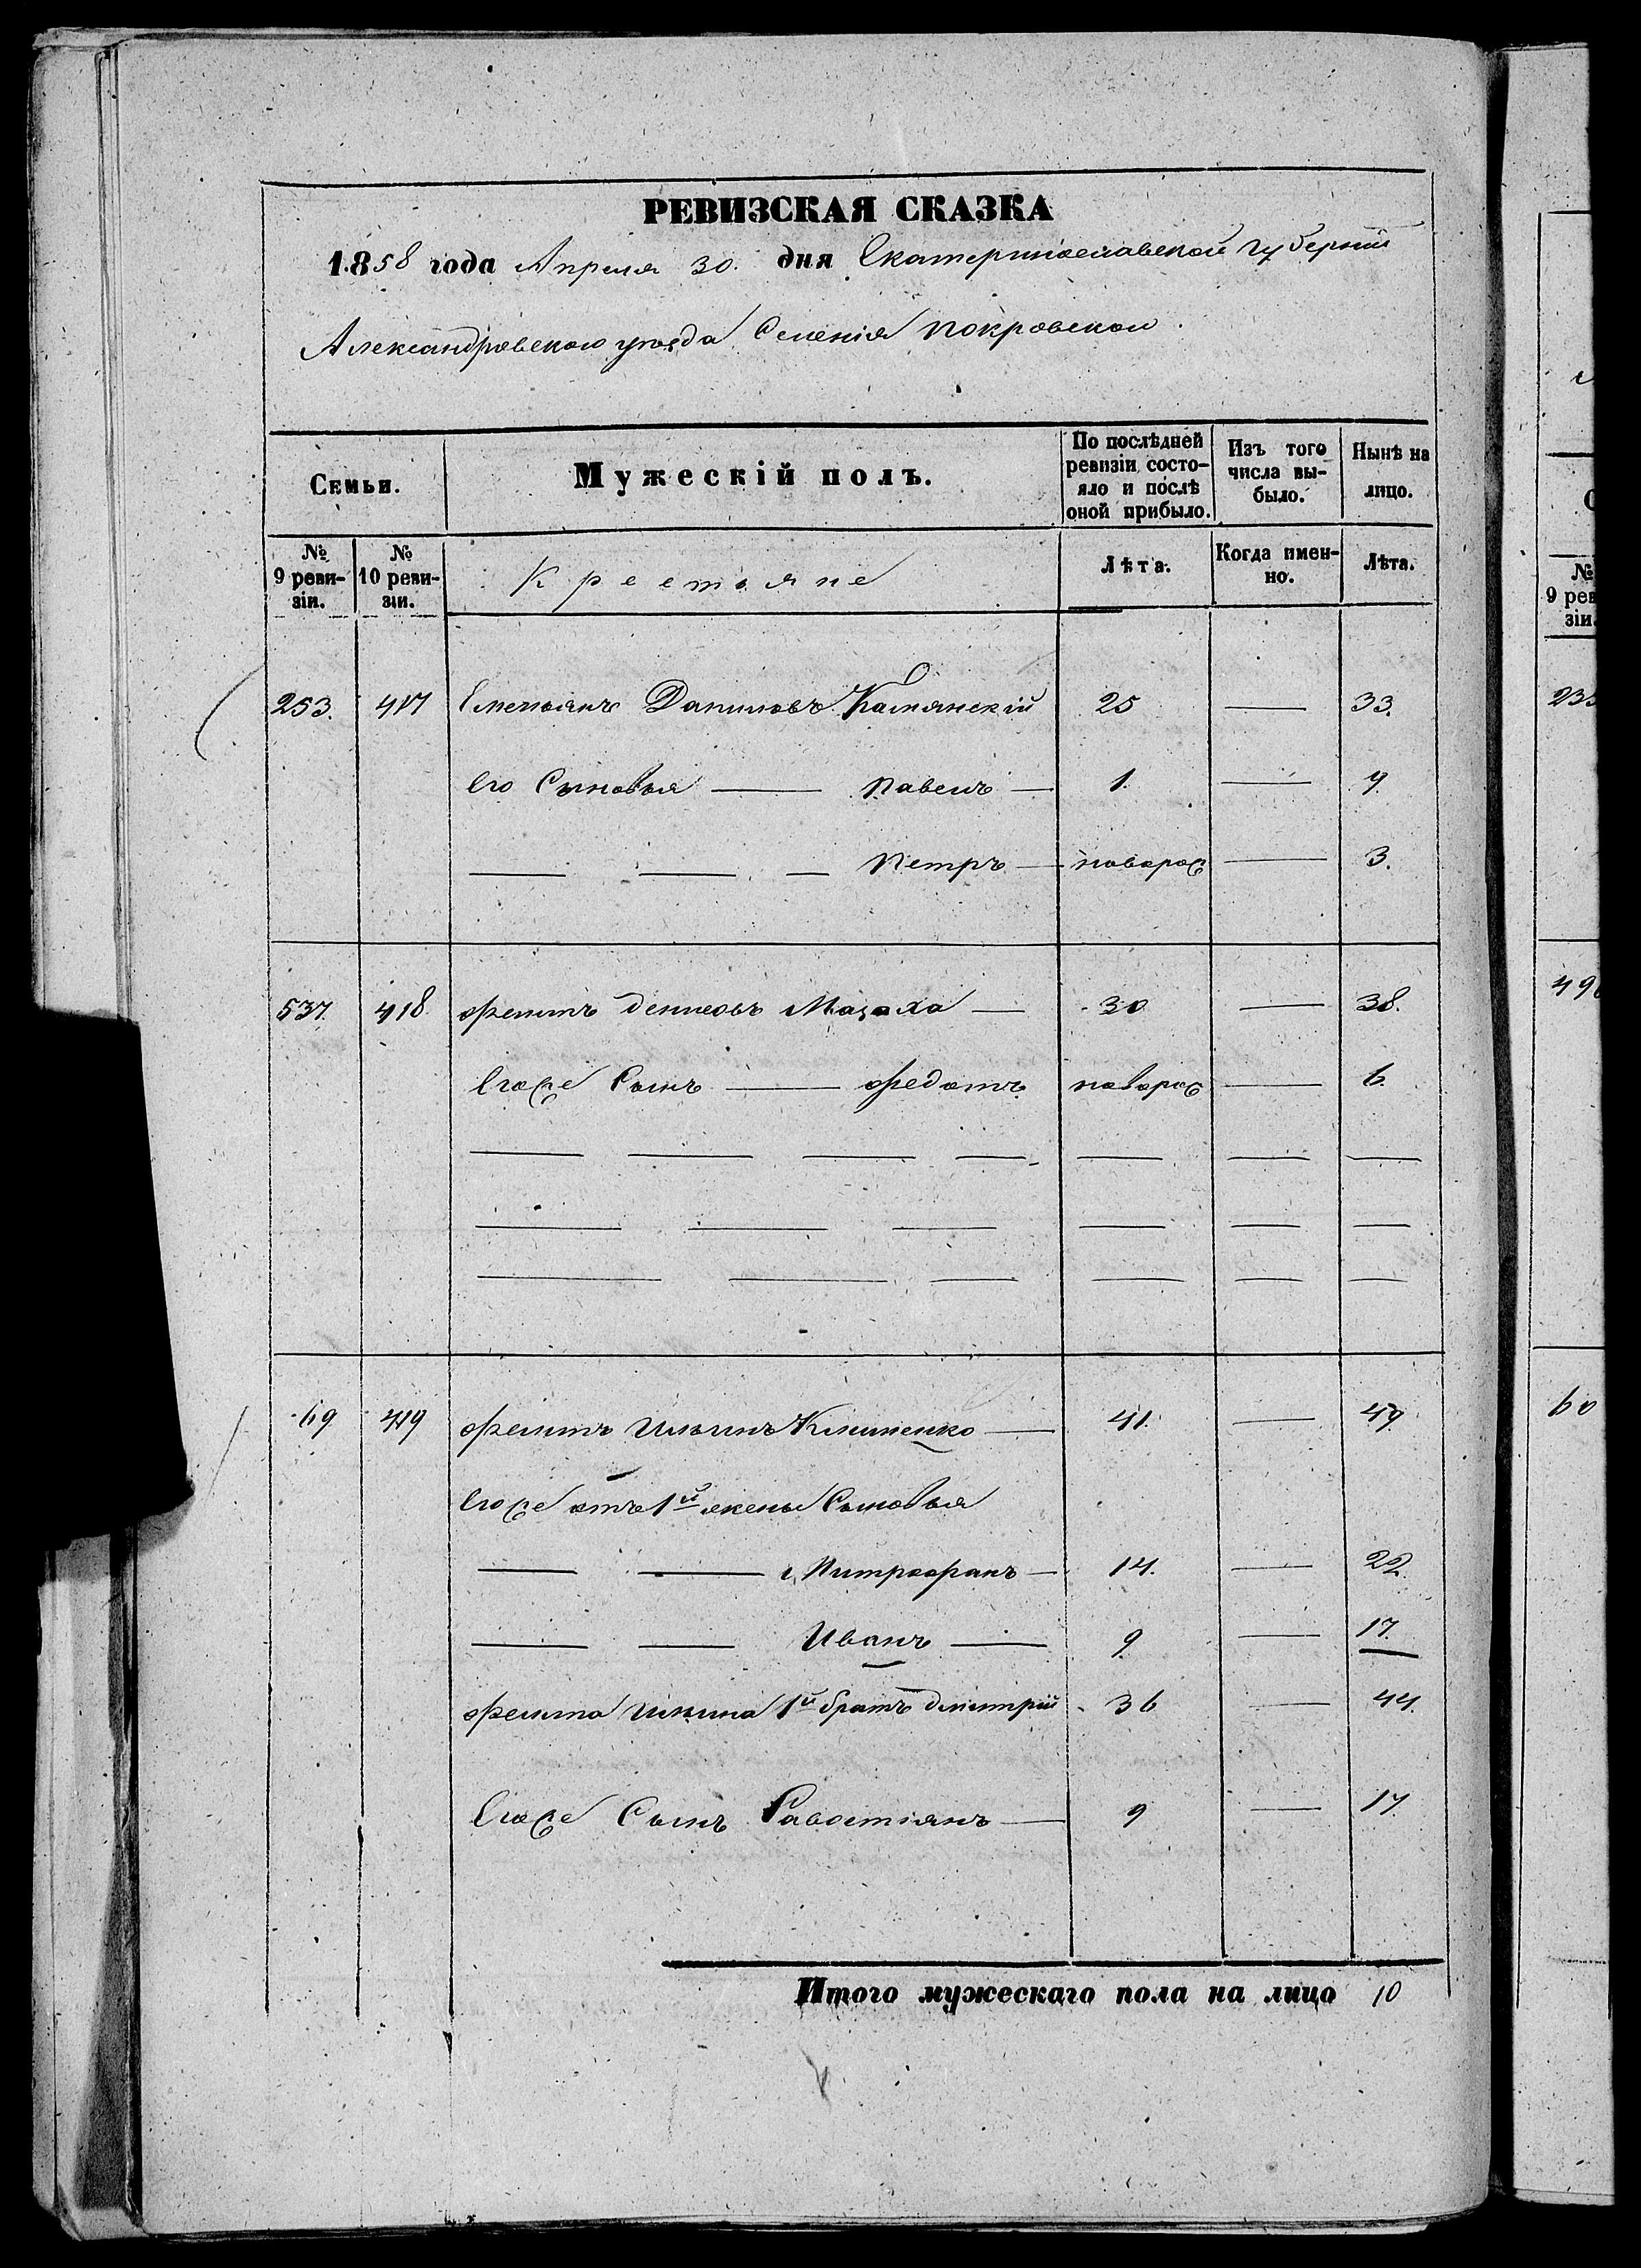 РЕВИЗСКАЯ СКАЗКА
1858 года Апреля 30. дня Екатеринославской губерніи
Александровского уѣзда Селенія Покровского.
Семьи.
Мужескій полъ.
По послѣдней ревизіи состояло и послѣ оной прибыло.
Изъ того числа выбыло.
Нынѣ на лицо.
№ 9 ревизіи.
№ 10 ревизіи.
Крестьяне
Лѣта.
Когда именно.
Лѣта.
253. 417 Емельянъ Даниловъ Камянскій 25 — 33.
Его Сыновья — Павелъ — 1. — 9.
— — — Петръ — новорож — 3.
537. 418. Филипъ Денисовъ — 30 — 38.
Егоже Сынъ — Федотъ новорож — 6.
69 419 Филипъ Ильинъ Клименко — 41. — 49.
Егоже отъ 1й жены Сыновья
— — Митрофанъ — 14. — 22.
— — Иванъ — 9 — 17.
Филипа Ильина 1й братъ Дмитрій 36 — 44.
Егоже Сынъ Савостіянъ — 9 — 17.
Итого мужескаго пола на лицо 10
№
9 рев
зіи
235
60